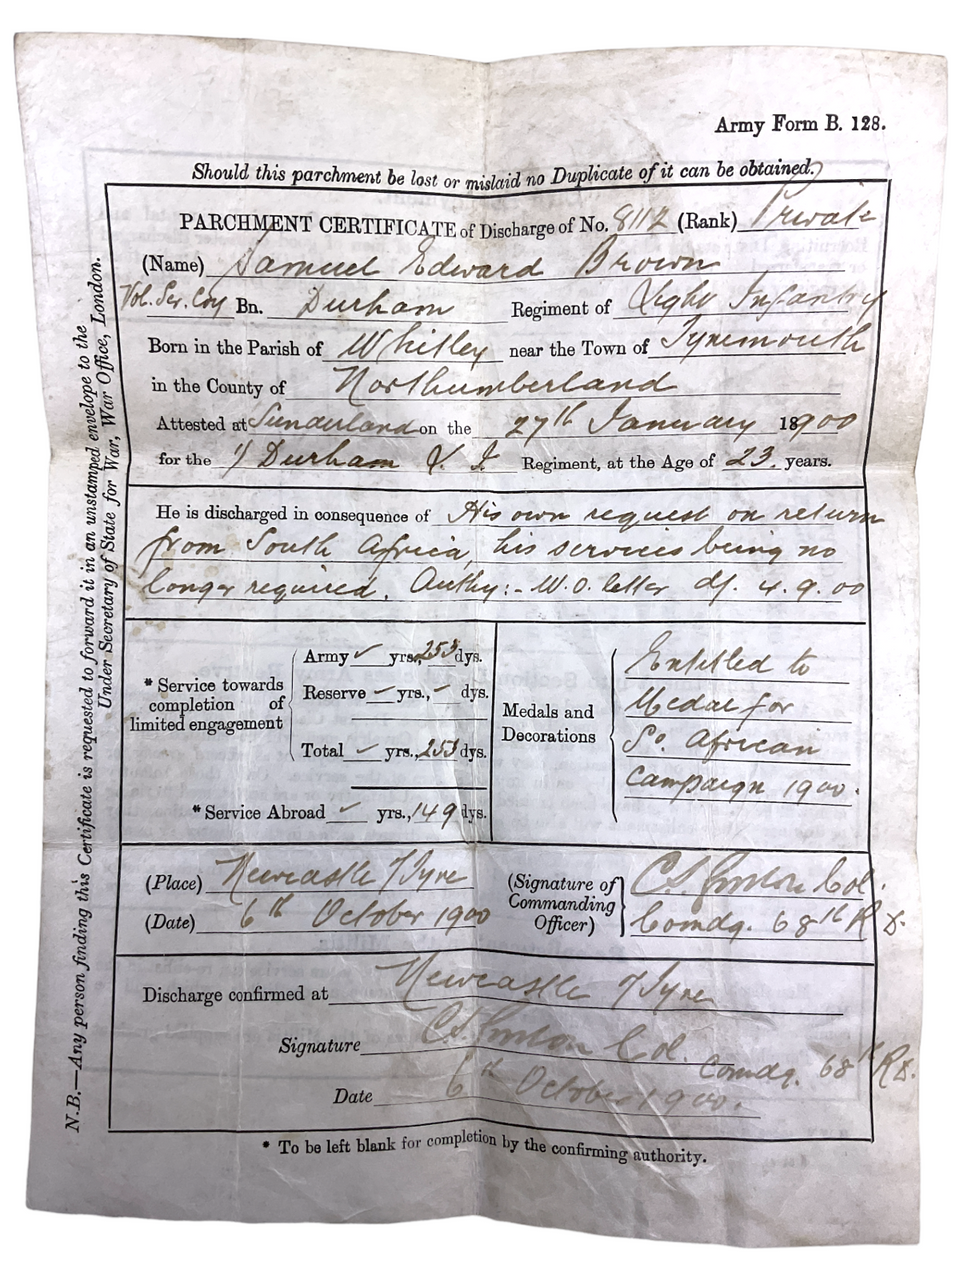 Army Form B. 128.
Should this parchment be lost or mislaid no Duplicate of it can be obtained.
PARCHMENT CERTIFICATE of Discharge of No. 8112 (Rank) Private
(Name) Samuel Edward Brown
Vol. Ser. Coy Bn. Durham Regiment of Light Infantry
Born in the Parish of Whitley near the Town of Tynemouth
in the County of Northumberland
Attested at Sunderland on the 27th January 18900
for the 1/ Durham L. I. Regiment, at the Age of 23. years.
He is discharged in consequence of His own request on return
from South Africa, his services being no
longer required. Authy:- W.O. letter d/. 4.9.00
* Service towards completion of limited engagement
Army ✓ yrs. 253 dys.
Reserve – yrs., – dys.
Total ✓ yrs., 253 dys.
* Service Abroad ✓ yrs., 149 dys.
Medals and Decorations
Entitled to
Medal for
So. African
Campaign 1900.
(Place) Newcastle T/Tyne
(Date) 6th October 1900
(Signature of Commanding Officer) Col.
Comdg. 68th R.D.
Discharge confirmed at Newcastle T/Tyne
Signature Col.
Comdg. 68th R.D.
Date 6th October 1900.
* To be left blank for completion by the confirming authority.
N.B.—Any person finding this Certificate is requested to forward it in an unstamped envelope to the
Under Secretary of State for War, War Office, London.